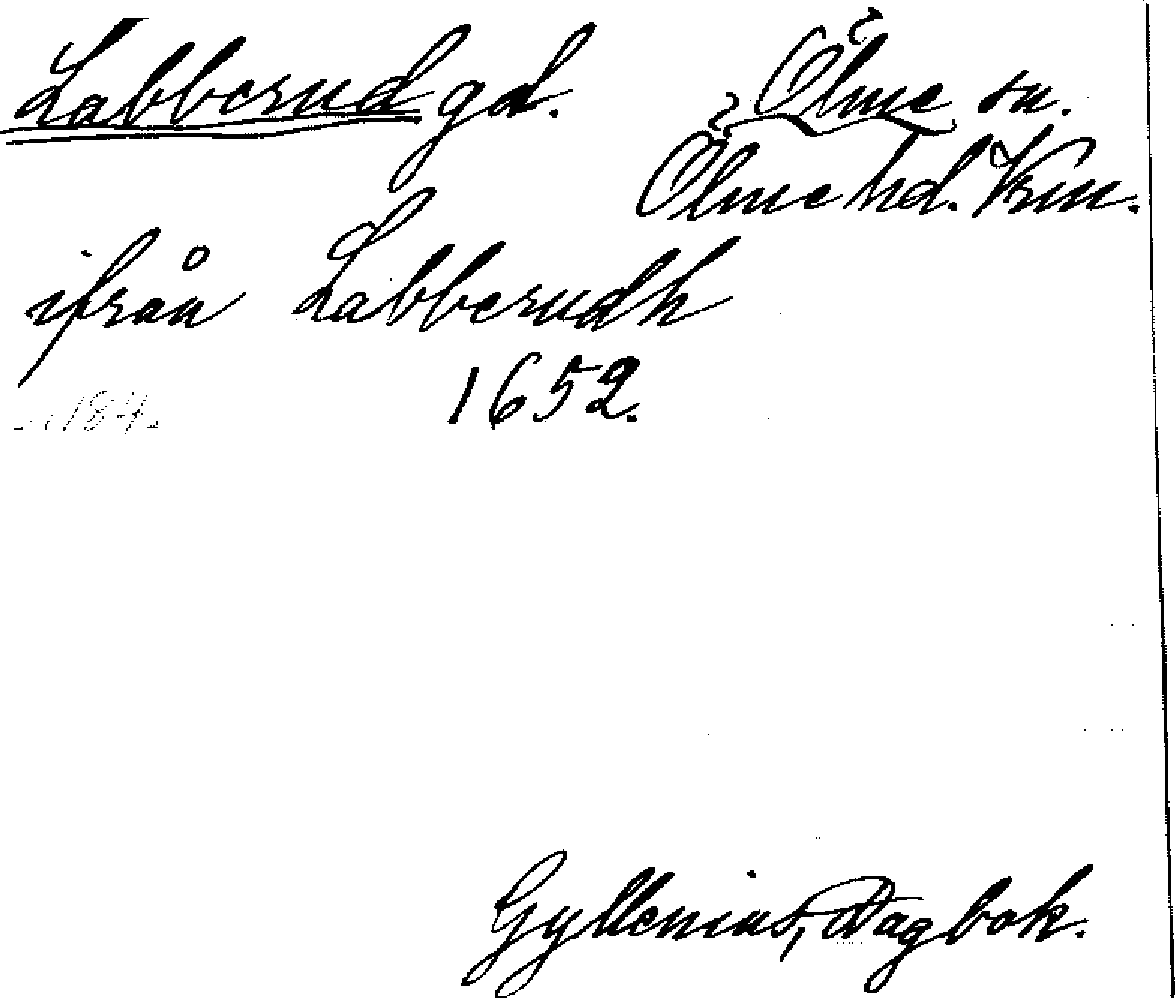 Labberud gd. Ölme sn.
Ölme hd. Vrm.
ifrån Labberudh
1652.
s. 184.
Gyllenius, Dagbok.